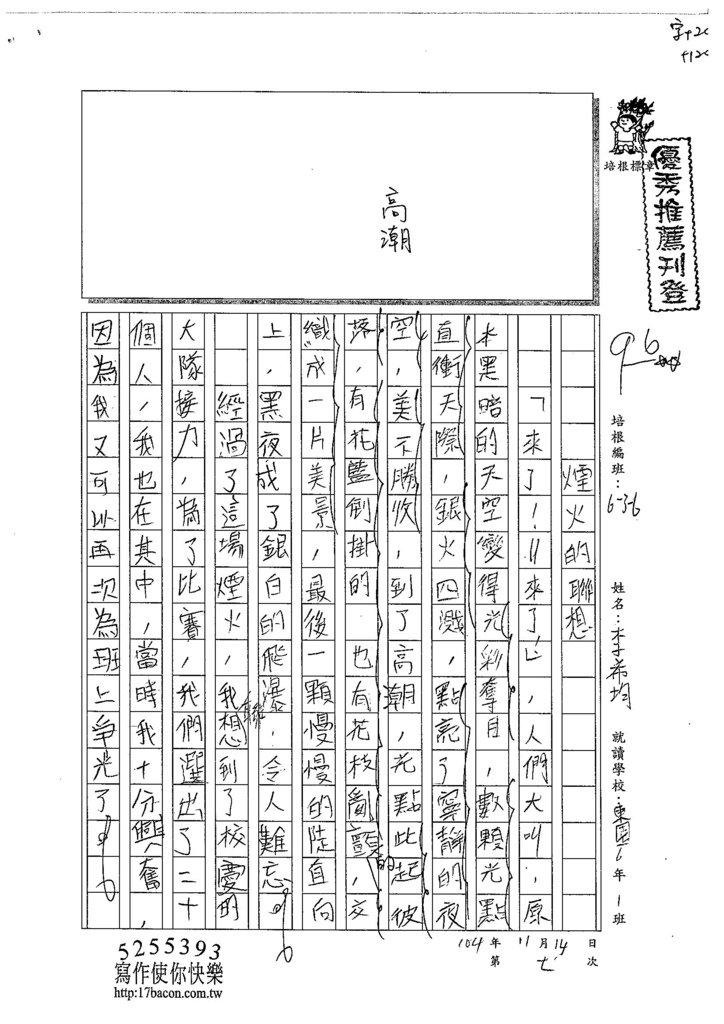 字+2
+1
培根標章
優秀推薦刊登
高潮
96
培根編班：6-3-6
姓名：李希均
就讀學校：東園6年1班
104年11月14日
第七次
煙火的聯想
「來了！！來了！」，人們大叫，原
本黑暗的天空變得光彩奪目，數顆光點
直衝天際，銀火四濺，點亮了寧靜的夜
空，美不勝收，到了高潮，光點此起彼
落，有花藍倒掛的　也有花枝亂顫的，交
織成一片美景，最後一顆慢慢的陡直向
上，黑夜成了銀白的飛瀑，令人難忘。
經過了這場煙火，我聯想到了校慶的
大隊接力，為了比賽，我們選出了二十
個人，我也在其中，當時我十分興奮，
因為我又可以再次為班上爭光了。
5255393
寫作使你快樂
http:17bacon.com.tw